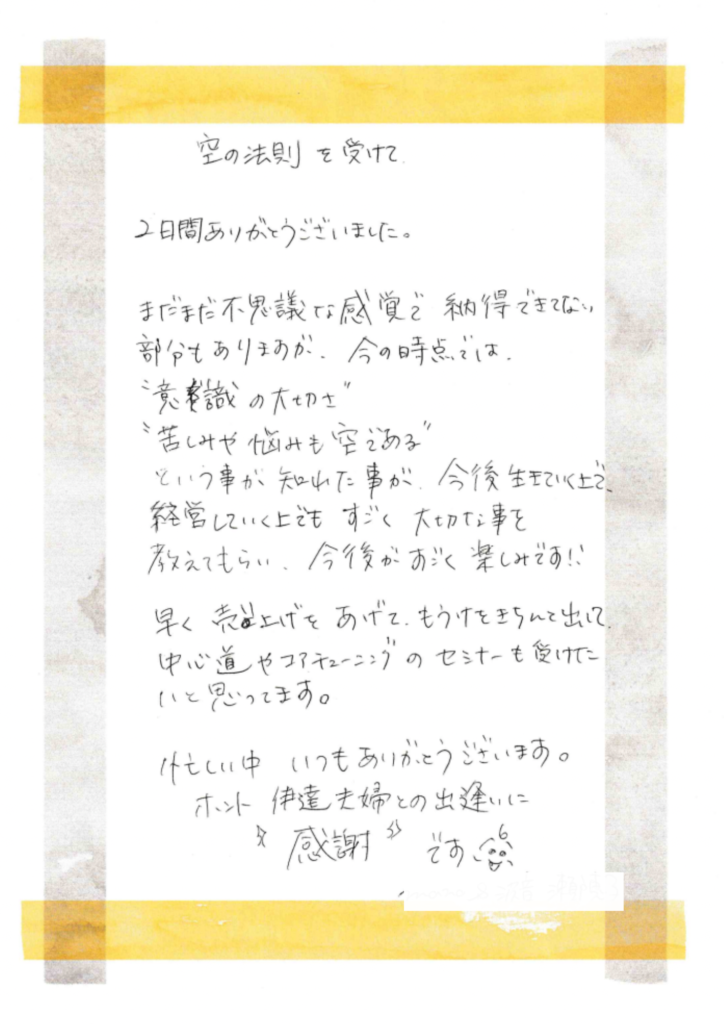 空の法則 を受けて.
2日間ありがとうございました。
まだまだ不思議な感覚で 納得できてない
部分もありますが、今の時点では、
"意識の大切さ"
"苦しみや悩みも空である"
という事が 知れた事が、今後生きていく上で、
経営していく上でも すごく 大切な事を
教えてもらい、今後がすごく 楽しみです!!
早く 売上げを あげて、もうけをきちんと出して、
中心道やコアチューニングの セミナーも受けた
いと思ってます。
忙しい中 いつもありがとうございます。
ホント 伊達夫婦との出逢いに
感謝 です